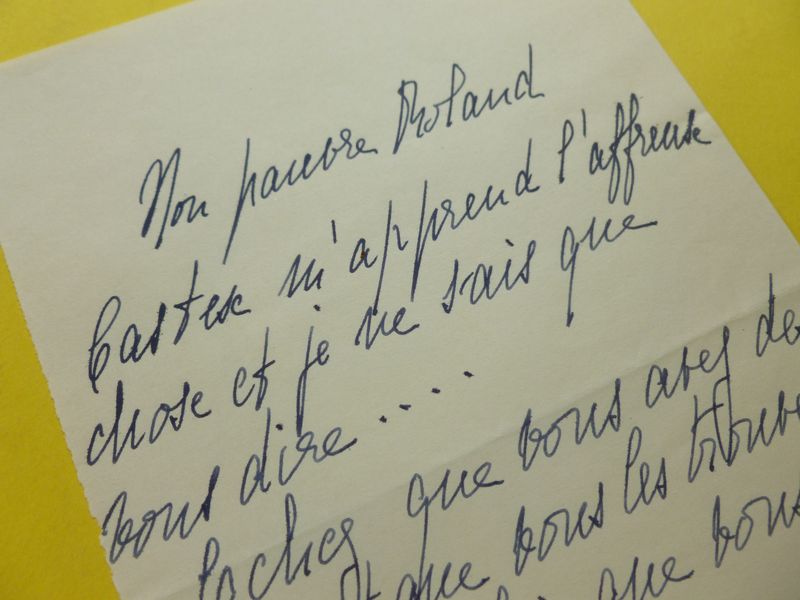 Mon pauvre Roland
Castex m'apprend l'affreuse
chose et je ne sais que
vous dire ....
Sachez que vous avez de
et que vous les trouve
que vous